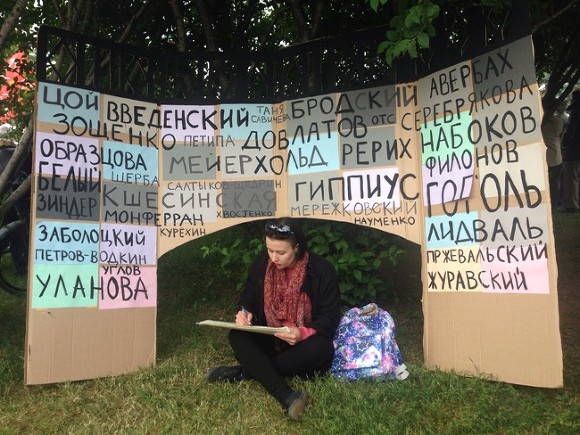 ЦОЙ ВВЕДЕНСКИЙ ТАНЯ САВИЧЕВА БРОДСКИЙ АВЕРБАХ
ЗОЩЕНКО ПЕТИПА ДОВЛАТОВ ОТС СЕРЕБРЯКОВА
ОБРАЗЦОВА МЕЙЕРХОЛЬД РЕРИХ НАБОКОВ
ЩЕРБА ФИЛОНОВ
БЕЛЫЙ САЛТЫКОВ-ЩЕДРИН ГИППИУС ГОГОЛЬ
ЗИНДЕР КШЕСИНСКАЯ МЕРЕЖКОВСКИЙ
МОНФЕРРАН ХВОСТЕНКО НАУМЕНКО
КУРЕХИН
ЗАБОЛОЦКИЙ ЛИДВАЛЬ
ПЕТРОВ-ВОДКИН ПРЖЕВАЛЬСКИЙ
УГЛОВ ЖУРАВСКИЙ
УЛАНОВА